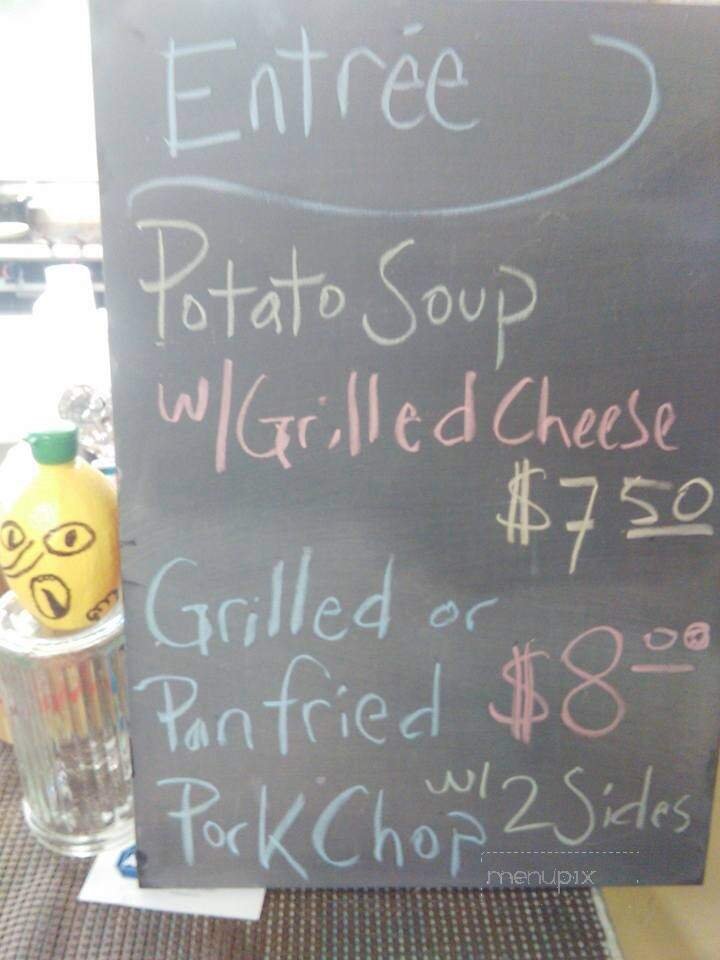 Entrée
Potato Soup
w/Grilled Cheese
$7 50
Grilled or
Panfried $8 00
Pork Chop w/ 2 Sides
menupix